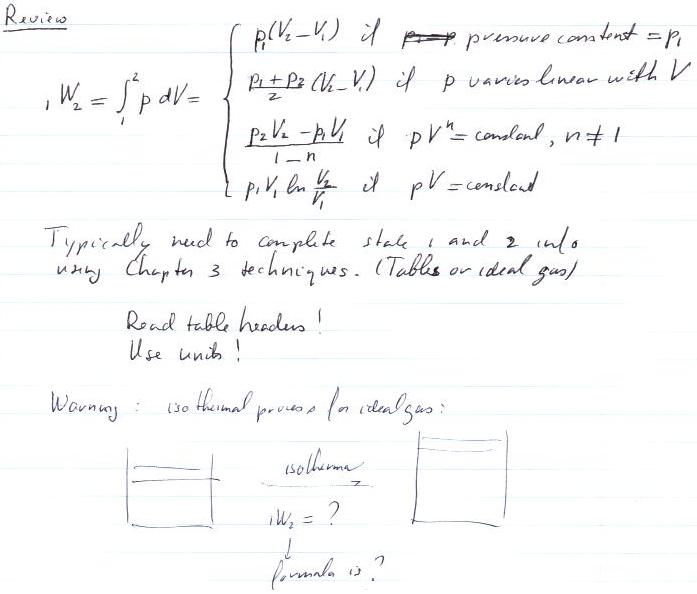 Review
p₁(V₂-V₁) if pressure constant = p₁
₁W₂ = ∫₁² p dV =
(p₁+p₂)/2 (V₂-V₁) if p varies linear with V
(p₂V₂ - p₁V₁)/(1-n) if pVⁿ = constant, n ≠ 1
p₁V₁ ln V₂/V₁ if pV = constant
Typically need to complete state 1 and 2 info
using Chapter 3 techniques. (Tables or ideal gas)
Read table headers!
Use units!
Warning: isothermal process for ideal gas:
isotherma
₁W₂ = ?
formula is?